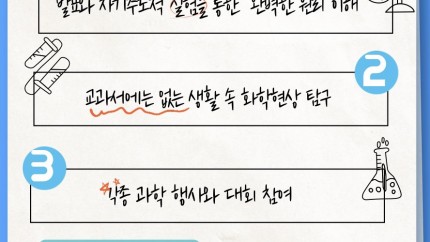 발표와 자기주도적 실험을 통한 완벽한 원리 이해
2
교과서에는 없는 생활 속 화학현상 탐구
3
각종 과학 행사와 대회 참여